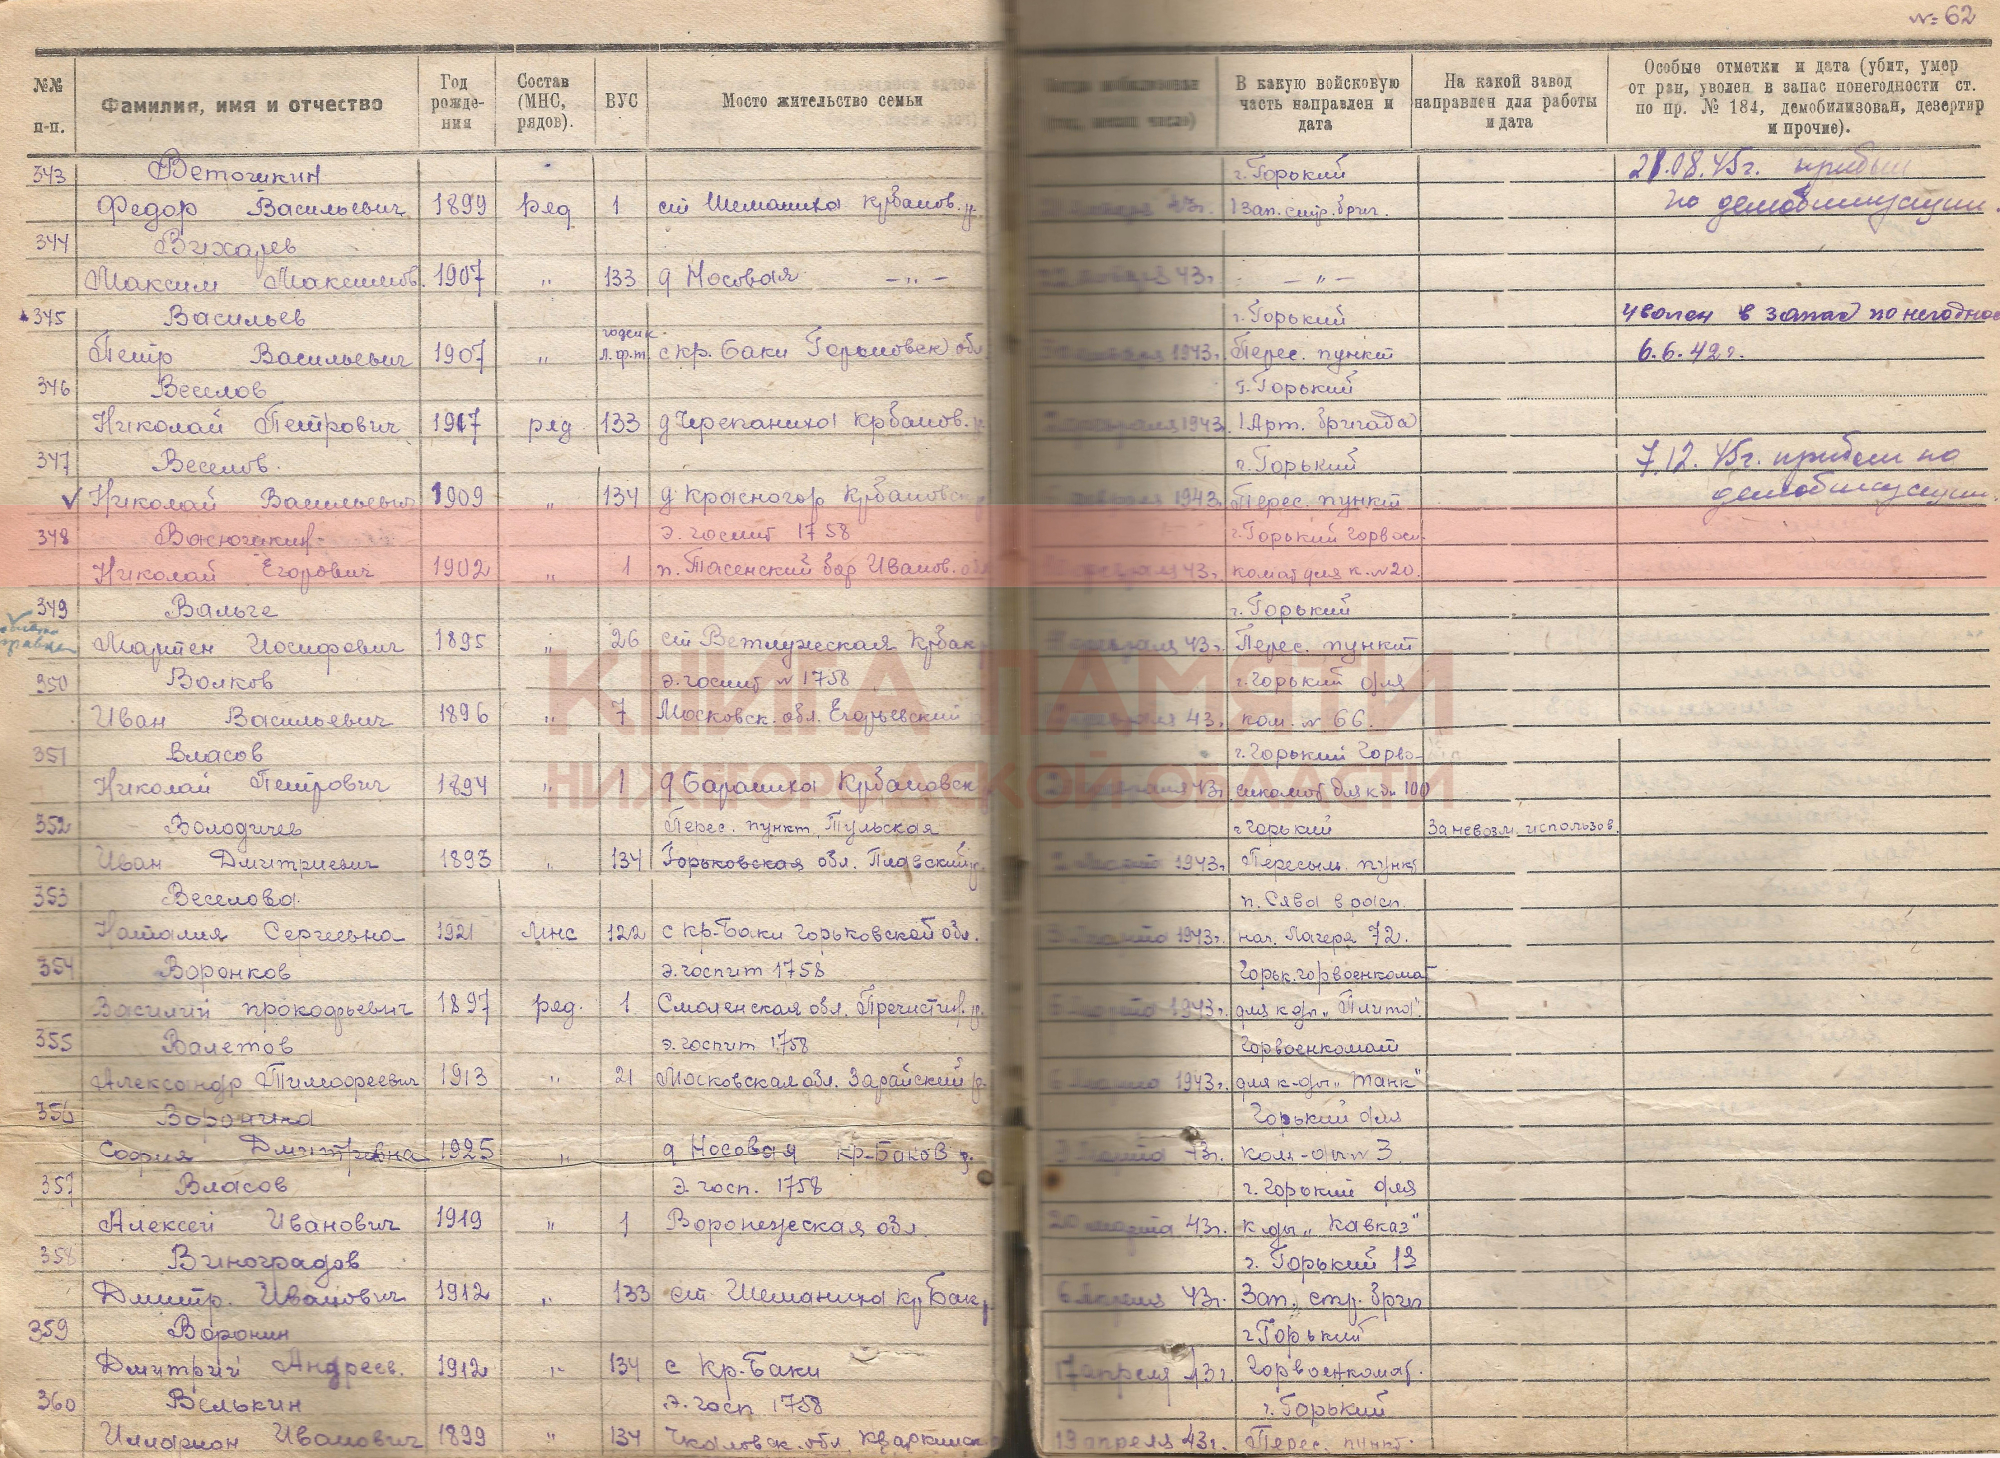 № 62
№№ п-п.
Фамилия, имя и отчество
Год рожде-ния
Состав (МНС, рядов).
ВУС
Мосто жительство семьи
В какую войсковую часть направлен и дата
На какой завод направлен для работы и дата
Особые отметки и дата (убит, умер от ран, уволен в запас понегодности ст. по пр. № 184, демобилизован, дезертир и прочие).
343 Веточкин г. Горький 21.08.45г. прибыл
Федор Васильевич 1899 ряд 1 ст Шеманиха Крбаков. р. 43г. 1 Зап. стр. бриг. по демобилизации.
344 Вихарев
Максим Максимов. 1907 „ 133 д Носовая —„— января 43г. —„—
345 Васильев г. Горький уволен в запас по негоднос
Петр Васильевич 1907 „ с Кр. Баки Горьковск обл 1943г. Перес. пункт 6.6.42г.
346 Веселов г. Горький
Николай Петрович 1917 ряд 133 д Черепаниха Крбаков. р. февраля 1943 1 Арт. бригада
347 Веселов. г. Горький 7.12.45г. прибыл по
Николай Васильевич 1909 „ 134 д Красногор Крбаковск февраля 1943г. Перес. пункт демобилизации.
348 Васючкин э. госпит 1758 г. Горький Горвоен
Николай Егорович 1902 „ 1 43г. комат для к. №20.
349 Вальге г. Горький
Мартен Иосифович 1895 „ 26 ст Ветлужская Крбак февраля 43г. Перес. пункт
350 Волков э. госпит № 1758 г. Горький для
Иван Васильевич 1896 „ 7 Московск. обл. Егорьевский февраля 43г. ком. № 66.
КНИГА ПАМЯТИ
351 Власов г. Горький Горво-
Николай Петрович 1894 „ 1 д Бараниха Крбаковск февраля 43г. енкомат для к-ды 100
НИЖЕГОРОДСКОЙ ОБЛАСТИ
352 Володичев Перес. пункт, Тульская г Горький За невозм. использов.
Иван Дмитриевич 1893 „ 134 Горьковская обл. Плавский р. марта 1943г. Пересыл. пункт
353 Веселова п. Сява в расп.
Наталия Сергеевна 1921 мнс 122 с Кр-Баки Горьковской обл. марта 1943г. нач. Лагеря 72.
354 Воронков э. госпит 1758 Горьк. горвоенкомат
Василий Прокофьевич 1897 ряд. 1 Смоленская обл. Пречистин. р. марта 1943г. для к-ды „Плита".
355 Валетов э. госпит 1758 Горвоенкомат
Александр Тимофеевич 1913 „ 21 Московская обл. Зарайский р. 6 марта 1943г. для к-ды „Танк"
356 Воронина Горький для
София Дмитриевна 1925 „ д Носовая Кр-Баков р. марта 43г. ком-ды № 3
357 Власов э. госп. 1758 г. Горький для
Алексей Иванович 1919 „ 1 Воронежская обл. 20 марта 43г. к-ды „Кавказ"
358 Виноградов г. Горький 13
Дмитр. Иванович 1912 „ 133 ст Шеманиха Кр Бак р. 6 апреля 43г. Зап. стр. бриг
359 Воронин г. Горький
Дмитрий Андреев. 1912 „ 134 с Кр-Баки 17 апреля 43г. Горвоенкомат.
360 Велькин э. госп 1758 г. Горький
Илларион Иванович 1899 „ 134 Чкаловск. обл. Кваркинск 19 апреля 43г. Перес. пункт.